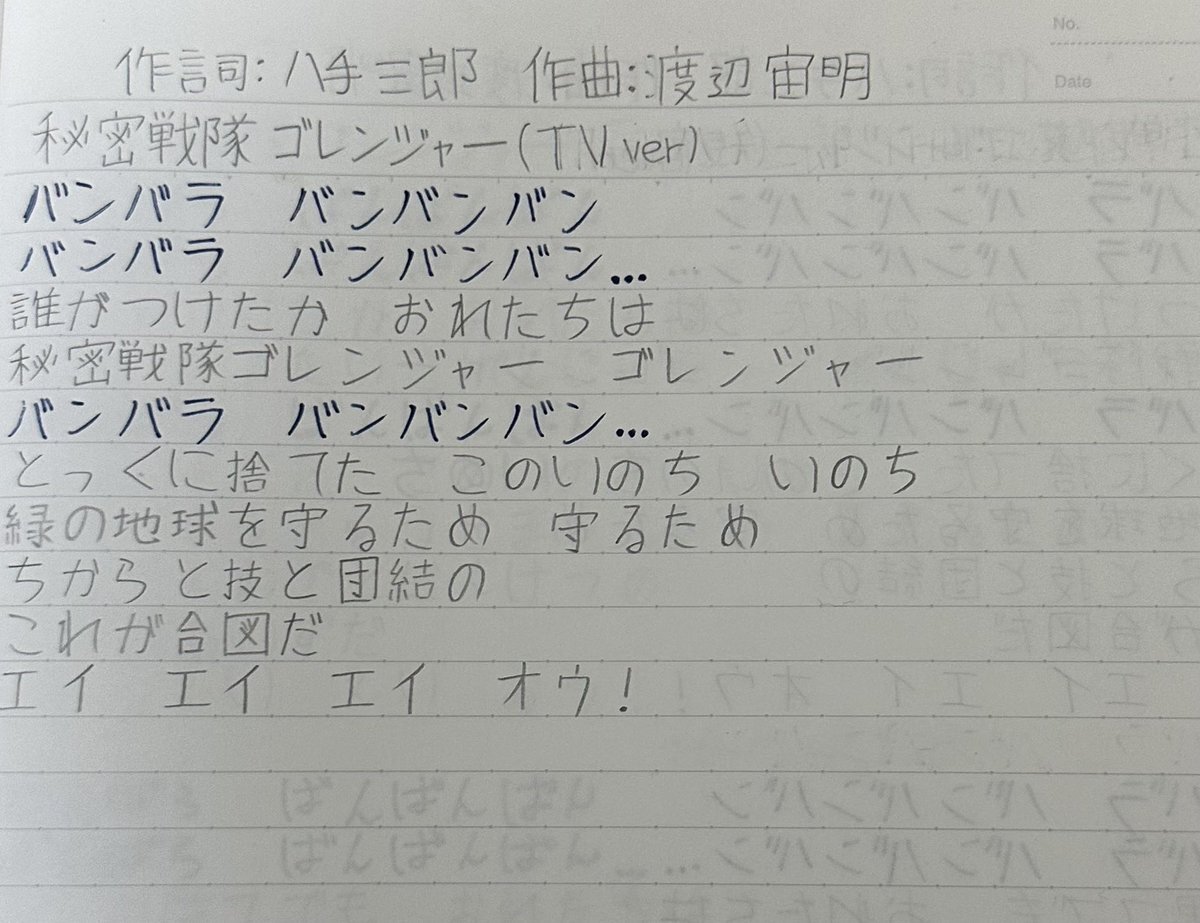 No.
Date
作詞: 八手三郎　作曲:渡辺宙明
秘密戦隊ゴレンジャー(TV ver)
バンバラ　バンバンバン
バンバラ　バンバンバン...
誰がつけたか　おれたちは
秘密戦隊ゴレンジャー　ゴレンジャー
バンバラ　バンバンバン...
とっくに捨てた　このいのち　いのち
緑の地球を守るため　守るため
ちからと技と団結の
これが合図だ
エイ　エイ　エイ　オウ!